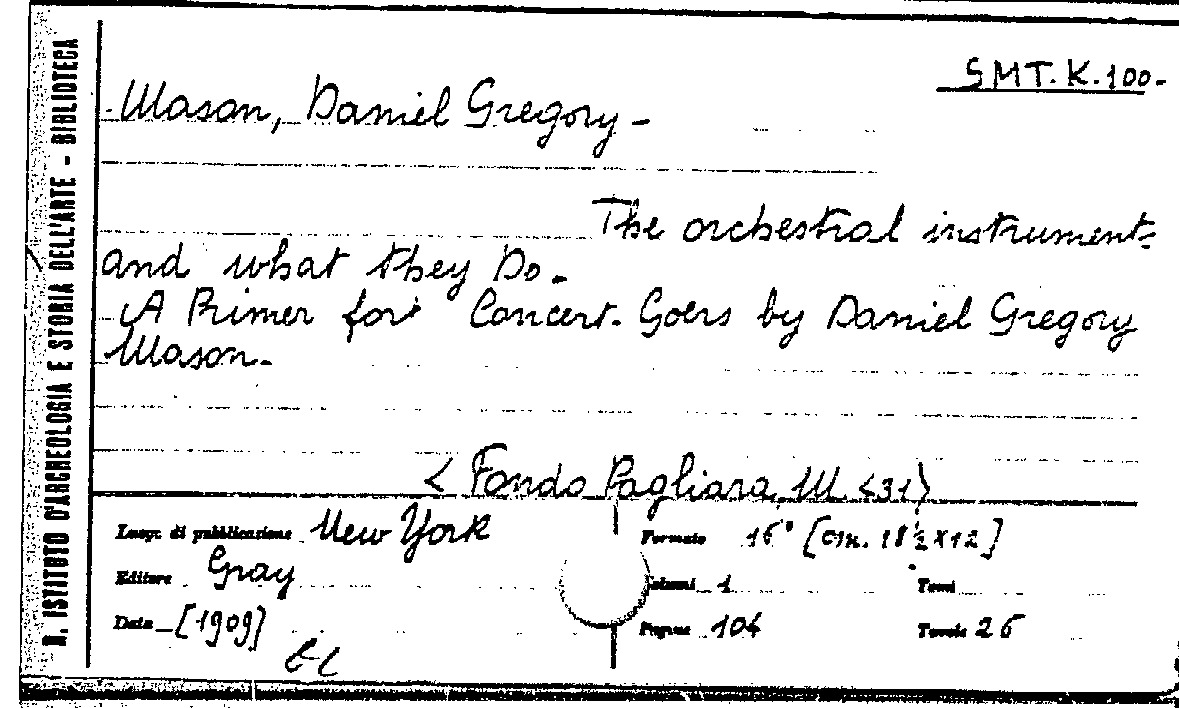 R. ISTITUTO D'ARCHEOLOGIA E STORIA DELL'ARTE - BIBLIOTECA
SMT. K. 100-
Mason, Daniel Gregory -
The orchestral instrument=
and what they Do.
A Primer for Concert-Goers by Daniel Gregory
Mason.-
< Fondo Pagliara, M <31>
Luogo di pubblicazione New York
Formato 16° [cm. 18 ½ x 12]
Editore Gray
Volumi 1
Tomi
Data [1909]
Pagine 104
Tavole 26